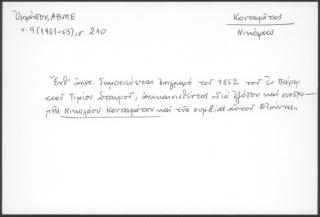 Ὀρλάνδου, ΑΒΜΕ
τ. 9 (1961-63), σ. 210
Κονταρᾶτος
Νικόλαος
Ἔνθ' ἀνωτ. δημοσιεύεται ἐπιγραφή τοῦ 1652 τοῦ ἐν Πάρῳ
ναοῦ Τιμίου Σταυροῦ, ἀνακαινισθέντος "διά ἐξόδου καί συνδρο-
μῆς Νικολάου Κονταράτου καί τῆς συμβίας αὐτοῦ Εἰρήνης"